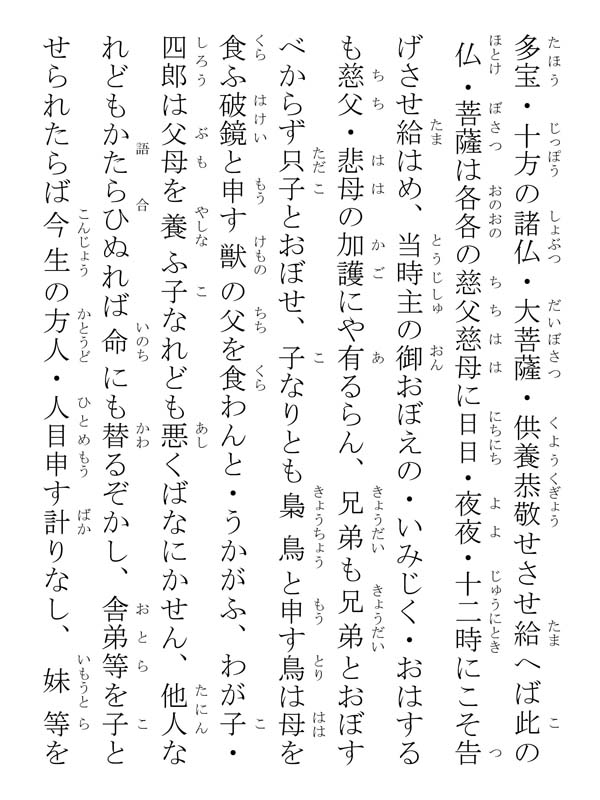 多宝・十方の諸仏・大菩薩・供養恭敬せさせ給へば此の
仏・菩薩は各各の慈父慈母に日日・夜夜・十二時にこそ告
げさせ給はめ、当時主の御おぼえの・いみじく・おはする
も慈父・悲母の加護にや有るらん、兄弟も兄弟とおぼす
べからず只子とおぼせ、子なりとも梟鳥と申す鳥は母を
食ふ破鏡と申す獣の父を食わんと・うかがふ、わが子・
四郎は父母を養ふ子なれども悪くばなにかせん、他人な
れどもかたらひぬれば命にも替るぞかし、舎弟等を子と
せられたらば今生の方人・人目申す計りなし、妹等を